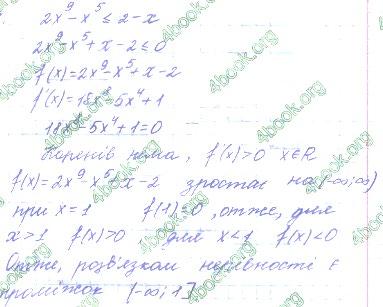 2x⁹-x⁵ ≤ 2-x
2x⁹-x⁵+x-2 ≤ 0
f(x)=2x⁹-x⁵+x-2
f'(x)=18x⁸-5x⁴+1
18x⁸-5x⁴+1=0
Коренів нема, f'(x)>0 x∈R
f(x)=2x⁹-x⁵+x-2 зростає на (-∞;∞)
при x=1 f(1)=0, отже, для
x>1 f(x)>0 для x<1 f(x)<0
Отже, розв'язком нерівності є
проміжок (-∞;1]
4book.org